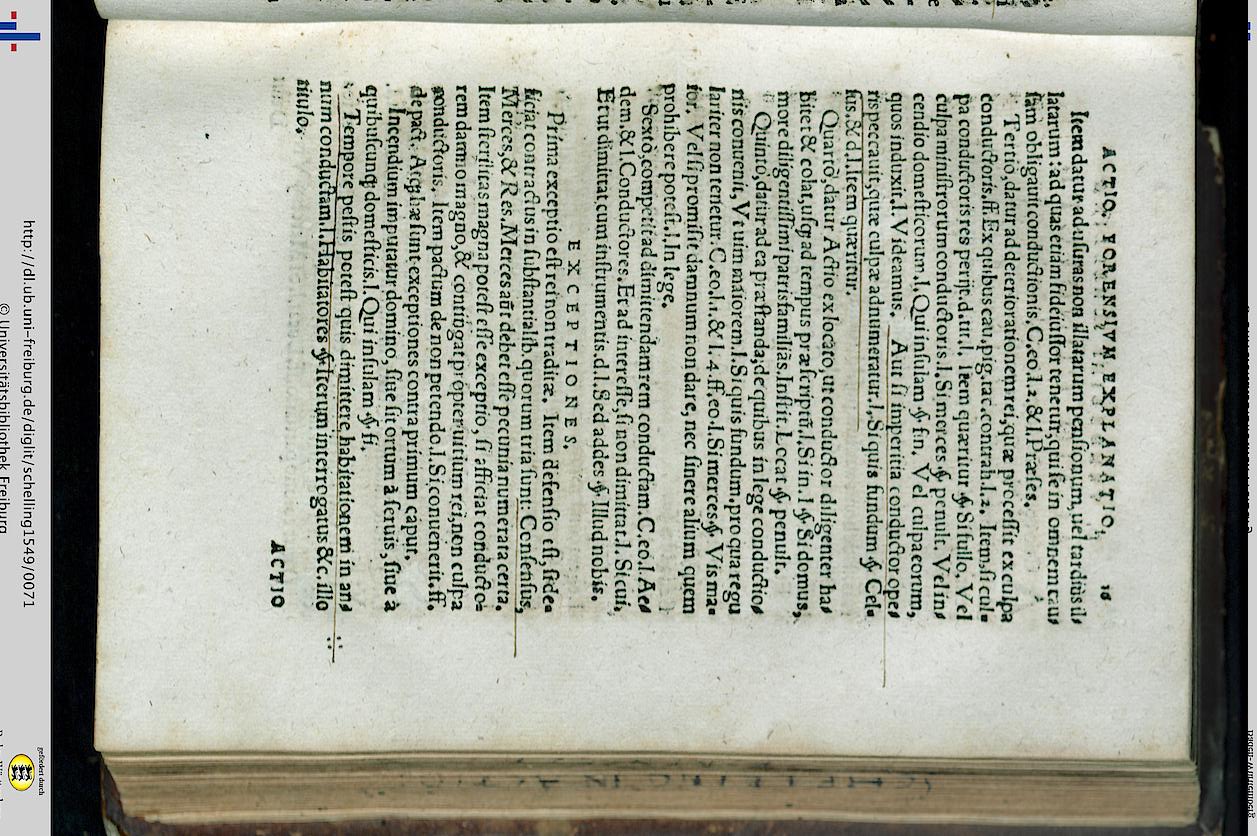 ACTIO. FORENSIVM EXPLANATIO. 16
Item datur ad usuras non illatarum pensionum, uel tardius il⸗
latarum: ad quas etiam fideiussor tenetur, qui se in omnem cau⸗
sam obligauit conductionis. C. eo. l. 2. & l. Præses.
Tertiò, datur ad deteriorationem rei, quæ processit ex culpa
conductoris. ff. Ex quibus cau. pig. tac. contrah. l. 2. Item, si cul⸗
pa conductoris res perijt. d. tit. l. Item quæritur §. Si fullo. Vel
culpa ministrorum conductoris. l. Si merces §. penult. Vel in⸗
cendio domesticorum. l. Qui insulam §. fin. Vel culpa eorum,
quos induxit. l. Videamus. Aut si imperitia conductor ope⸗
ris peccauit, quæ culpæ adnumeratur. l. Si quis fundum §. Cel⸗
sus. & d. l. Item quæritur.
Quartò, datur Actio ex locato, ut conductor diligenter ha⸗
bitet & colat, usq; ad tempus præscriptũ. l. Si in. l. §. Si domus,
more diligentissimi patrisfamiliâs. Instit. Locat §. penult.
Quintò, datur ad ea præstanda, de quibus in lege conductio⸗
nis conuenit, Vt uim maiorem. l. Si quis fundum. pro qua regu
lariter non tenetur. C. eo. l. 1. & l. 4. ff. eo. l. Si merces. §. Vis ma⸗
ior. Vel si promisit damnum non dare, nec sinere alium quem
prohibere potest. l. In lege.
Sextò, competit ad dimittendam rem conductam. C. eo. l. Ae⸗
dem. & l. Conductores. Et ad interesse, si non dimittat. l. Si cui,
Et ut dimittat cum instrumentis. d. l. Sed addes §. Illud nobis.
EXCEPTIONES.
Prima exceptio est rei non traditæ. Item defensio est, si de⸗
ficiat contractus in substantialib. quorum tria sunt: Consensus,
Merces, & Res. Merces aũt debet esse pecunia numerata certa.
Item sterilitas magna potest esse exceptio, si afficiat conducto⸗
rem damno magno, & contingat propter uitium rei, non culpa
conductoris. Item pactum de non petendo. l. Si conuenerit. ff.
de pact. Atq; hæ sunt exceptiones contra primum caput.
Incendium imputatur domino, siue sit ortum à seruis, siue à
quibuscunq; domesticis. l. Qui insulam §. fi.
Tempore pestis potest quis dimittere habitationem in an⸗
num conductam. l. Habitatores §. Iterum interrogatus &c. illo
titulo.
ACTIO
http://dl.ub.uni-freiburg.de/diglit/schelling1549/0071
© Universitätsbibliothek Freiburg
gefördert durch